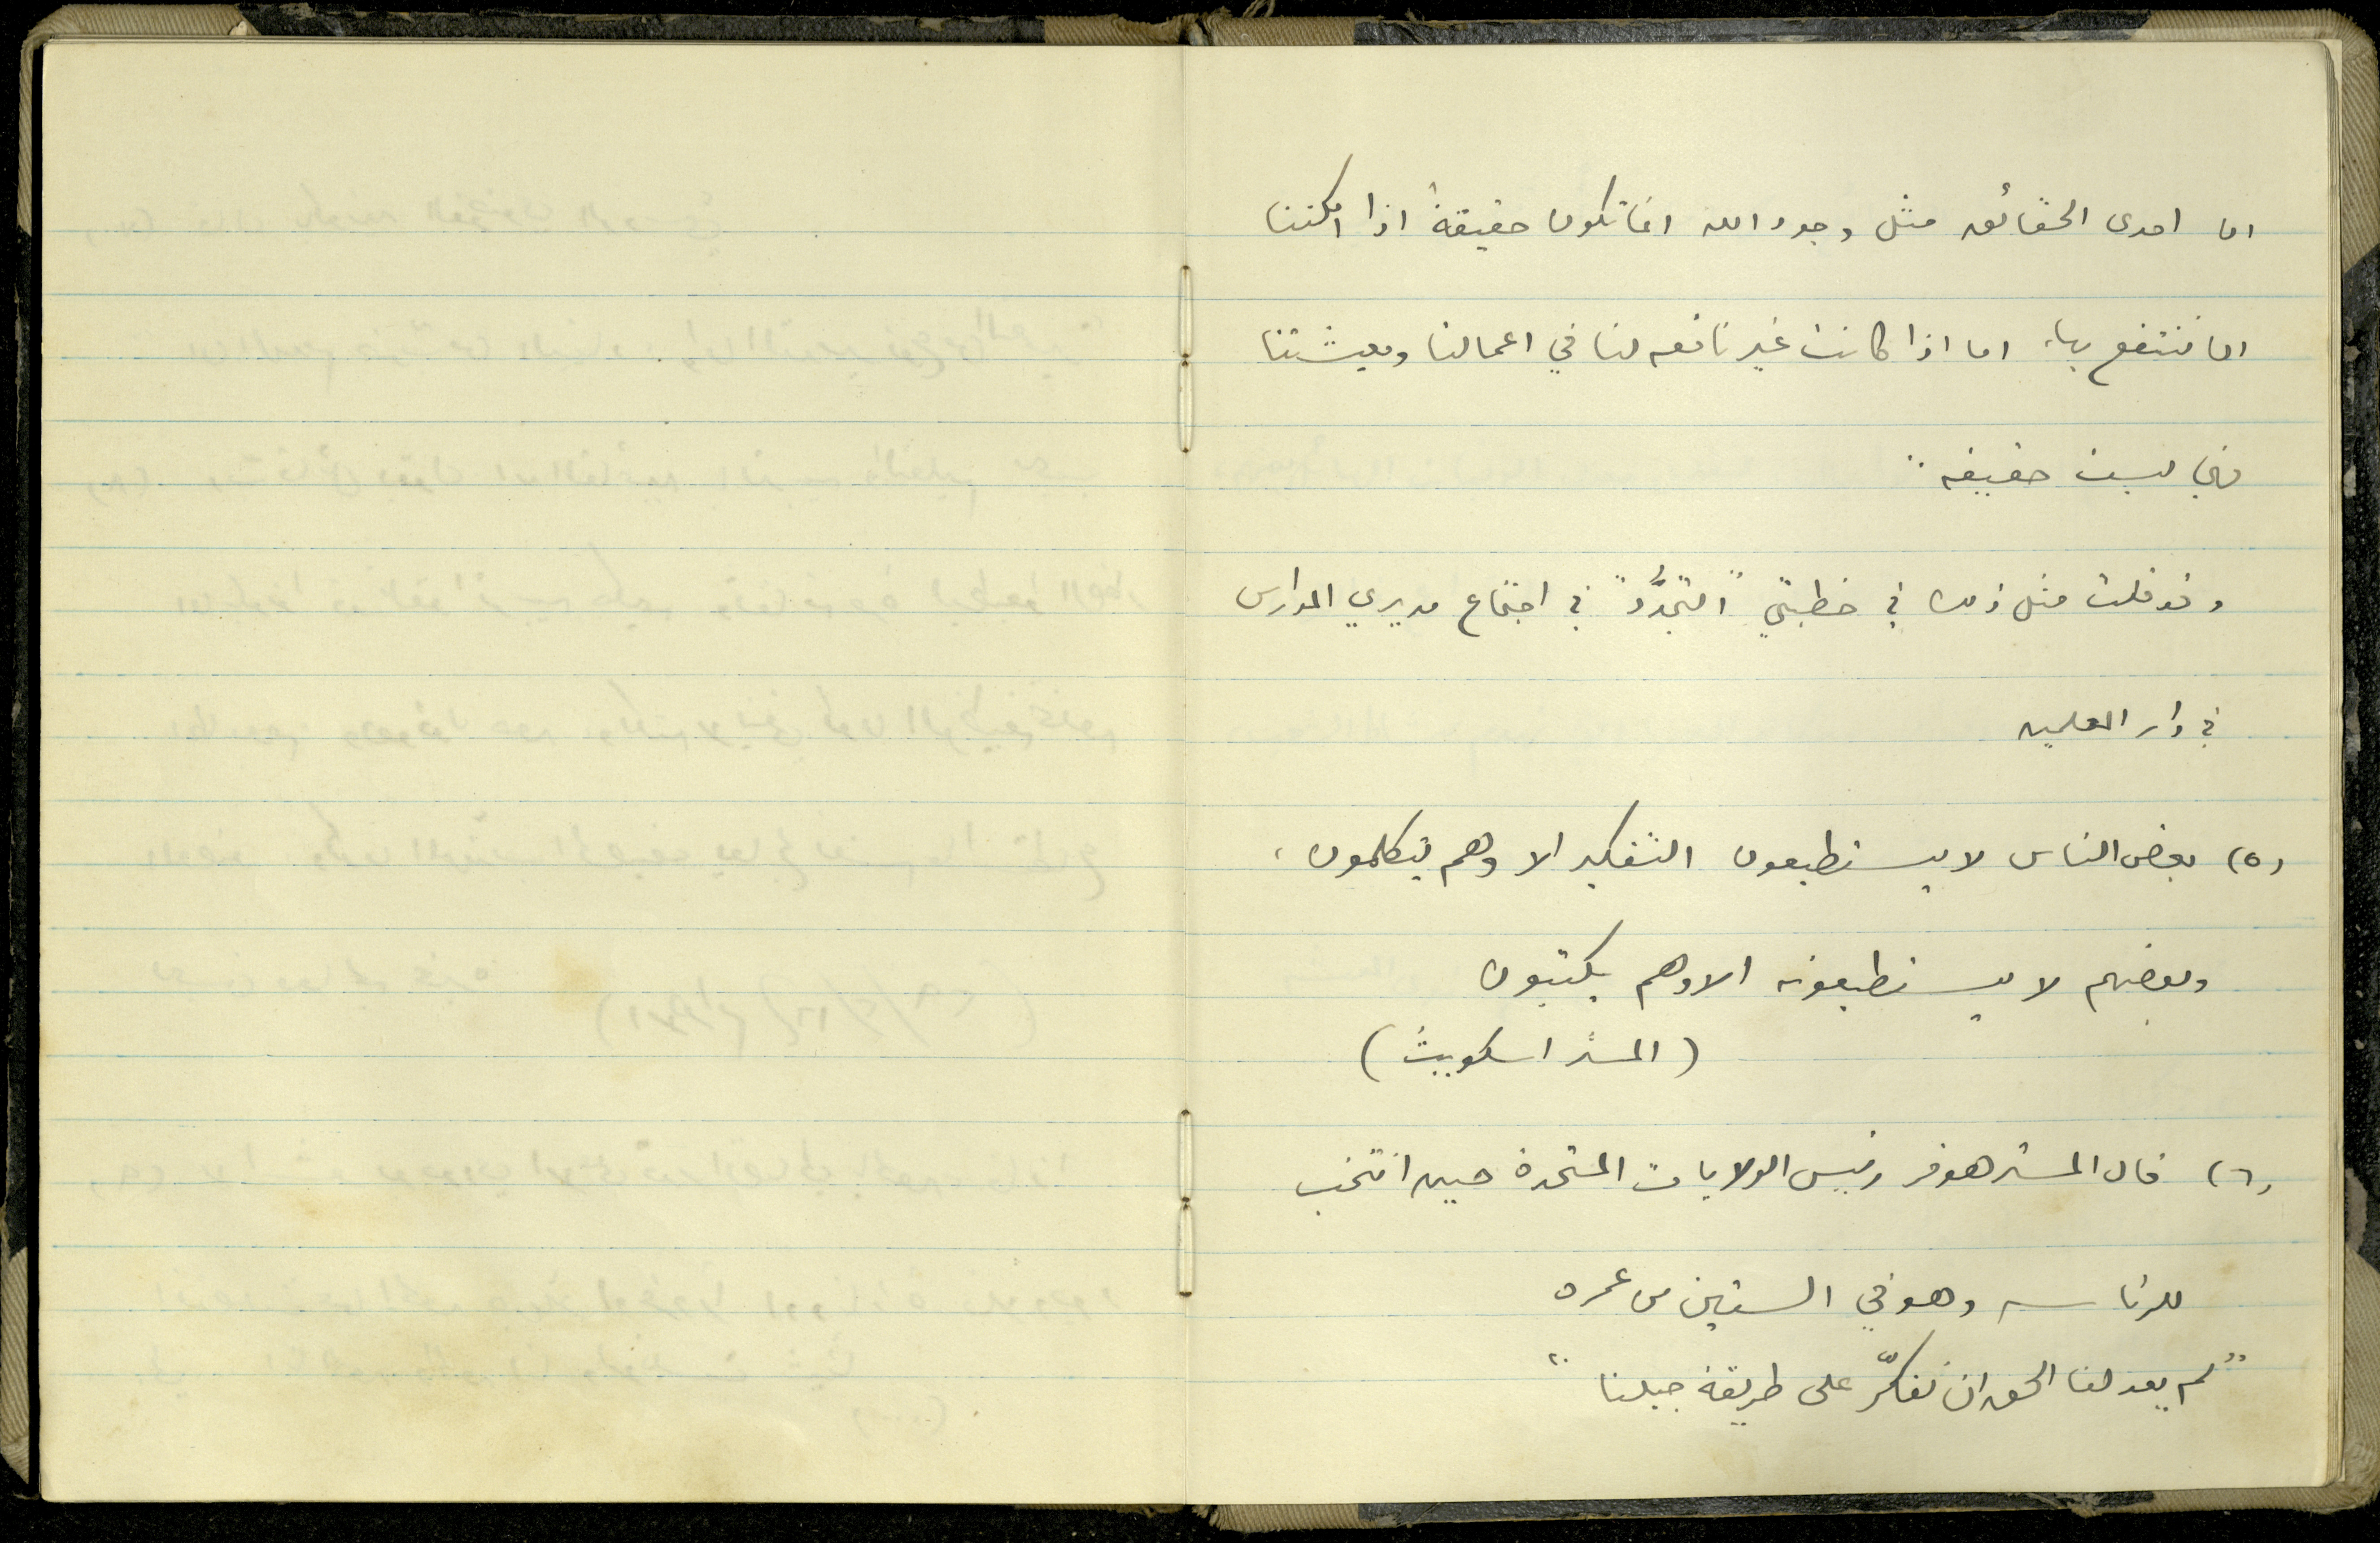 ان احدى الحقائق مثل وجود الله انما تكون حقيقةً اذا امكننا
ان ننتفع بها، اما اذا كانت غير نافعه لنا في اعمالنا ومعيشتنا
فهي ليست حقيقه"
وقد قلت مثل ذلك في خطبتي "التجدُّد" في اجتماع مديري المدارس
في دار المعلمين
(٥) بعض الناس لا يستطيعون التفكير الا وهم يتكلمون،
وبعضهم لا يستطيعونه الا وهم يكتبون
(المستر اسكويث)
(٦) قال المستر هوفر رئيس الولايات المتحدة حين انتخب
للرئاسه وهو في الستين من عمره
"لم يعد لنا الحق ان نفكّر على طريقة جيلنا"